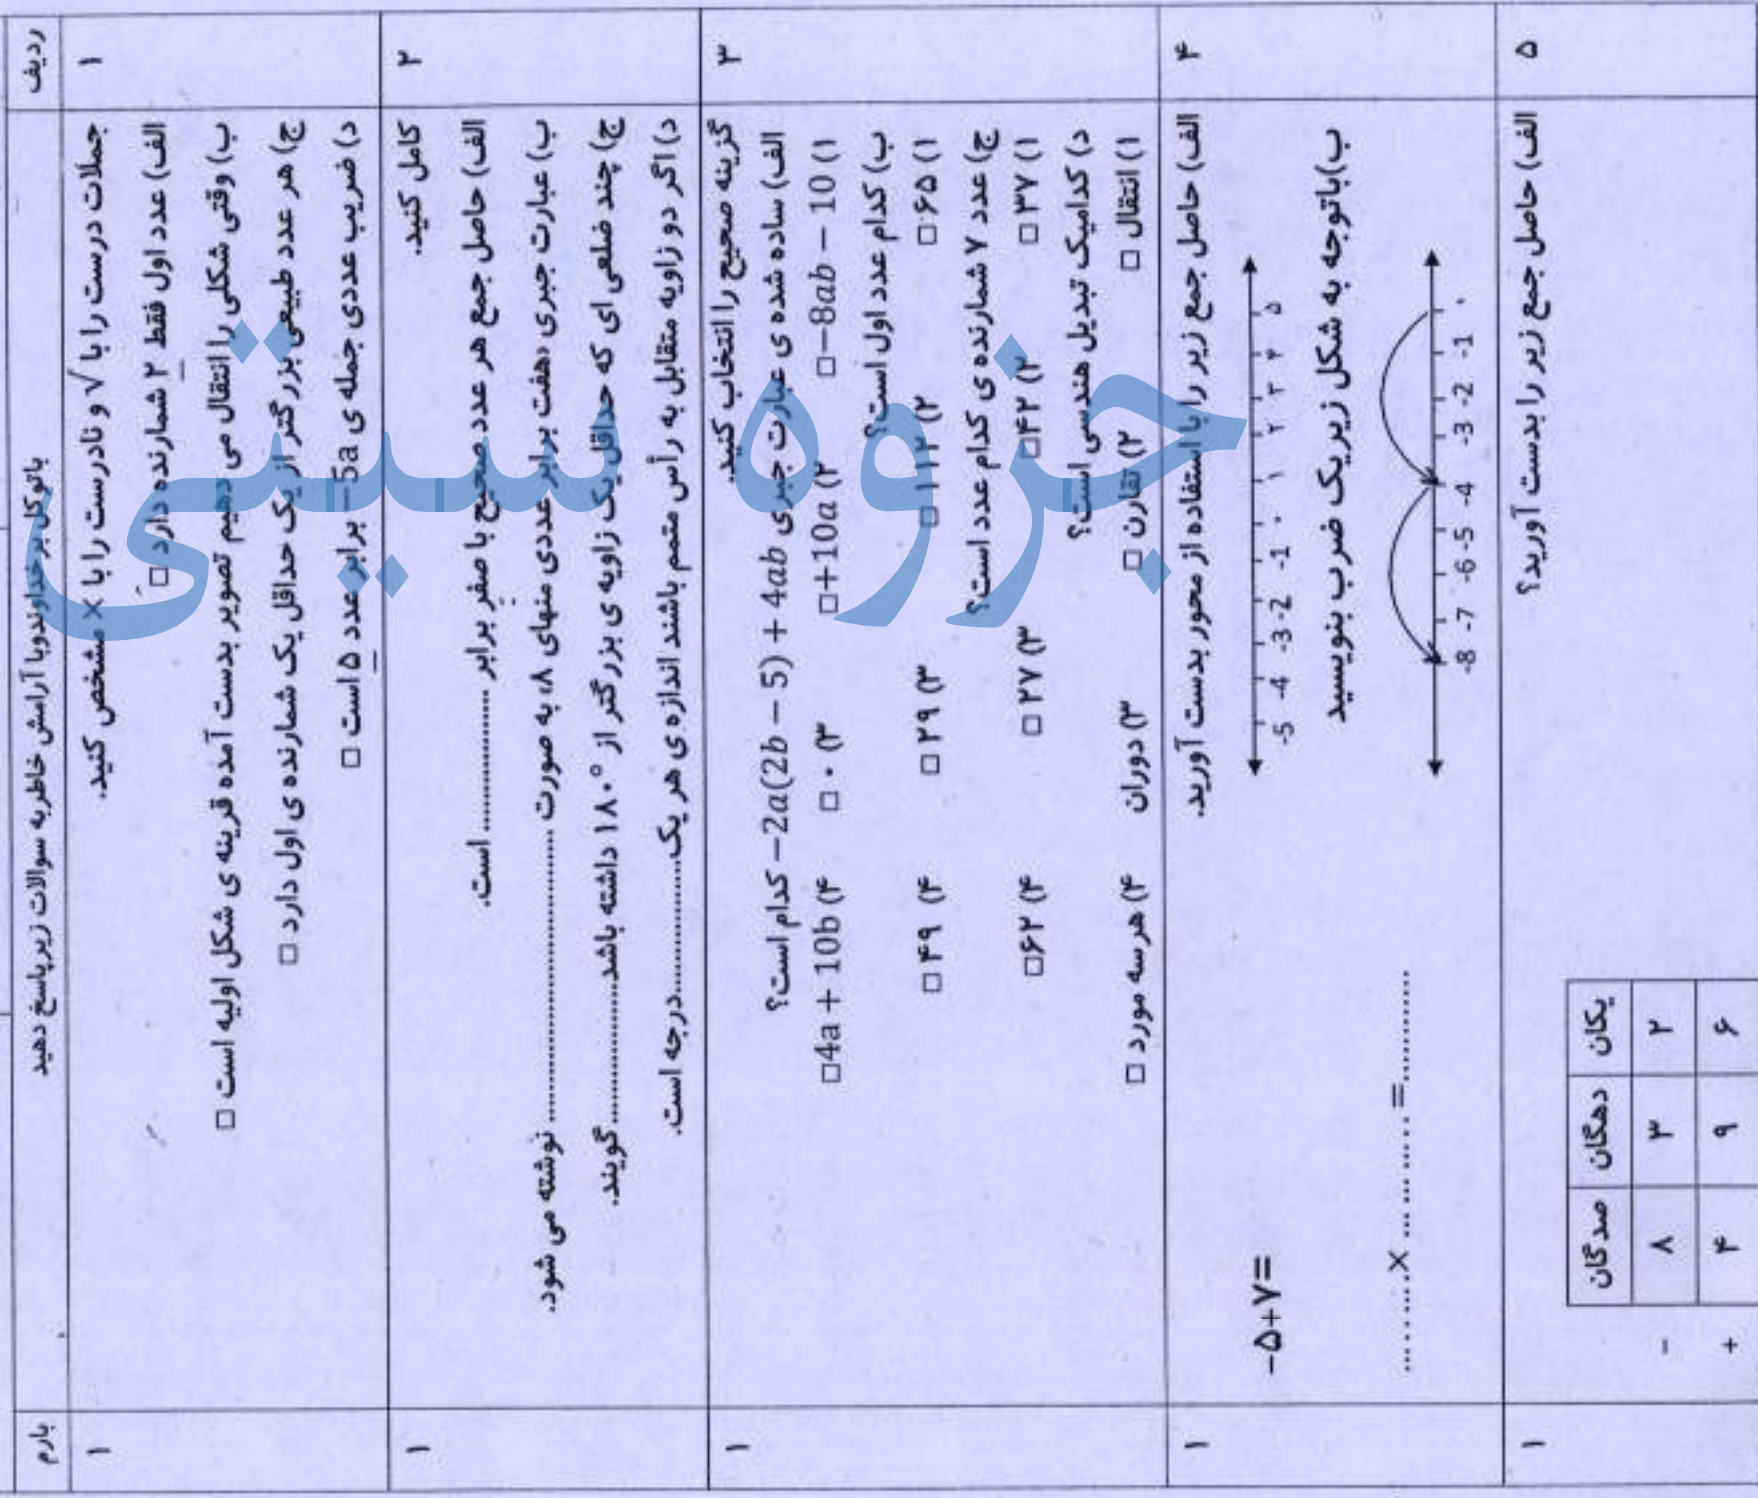 باتوکل برخداوندوبا آرامش خاطربه سوالات زیرپاسخ دهید
ردیف
بارم
۱
جملات درست را با √ و نادرست را با × مشخص کنید.
۱
الف) عدد اول فقط ۲ شمارنده دارد □
ب) وقتی شکلی را انتقال می دهیم تصویر بدست آمده قرینه ی شکل اولیه است □
ج) هر عدد طبیعی بزرگتر از یک حداقل یک شمارنده ی اول دارد □
د) ضریب عددی جمله ی −5a برابر عدد ۵ است □
۲
کامل کنید.
۱
الف) حاصل جمع هر عدد صحیح با صفر برابر ................ است.
ب) عبارت جبری «هفت برابر عددی منهای ۸» به صورت ................................ نوشته می شود.
ج) چند ضلعی ای که حداقل یک زاویه ی بزرگتر از ۱۸۰° داشته باشد................گویند.
د) اگر دو زاویه متقابل به رأس متمم باشند اندازه ی هر یک................درجه است.
۳
گزینه صحیح را انتخاب کنید.
۱
الف) ساده شده ی عبارت جبری −2a(2b − 5) + 4ab کدام است؟
۱) −8ab − 10 □ ۲) +10a □ ۳) ۰ □ ۴) 4a + 10b □
ب) کدام عدد اول است؟
۱) ۶۵ □ ۲) ۱۱۲ □ ۳) ۲۹ □ ۴) ۴۹ □
ج) عدد ۷ شمارنده ی کدام عدد است؟
۱) ۳۷ □ ۲) ۴۲ □ ۳) ۲۷ □ ۴) ۶۲ □
د) کدامیک تبدیل هندسی است؟
۱) انتقال □ ۲) تقارن □ ۳) دوران ۴) هرسه مورد □
۴
الف) حاصل جمع زیر را با استفاده از محور بدست آورید.
۱
−۵+۷=
-5 -4 -3 -2 -1 ۰ ۱ ۲ ۳ ۴ ۵
ب)باتوجه به شکل زیریک ضرب بنویسید
..........×..............=..........
-8 -7 -6 -5 -4 -3 -2 -1 ۰
۵
الف) حاصل جمع زیر را بدست آورید؟
۱
صدگان دهگان یکان
− ۸ ۳ ۲
+ ۴ ۹ ۶
جزوه سیتی